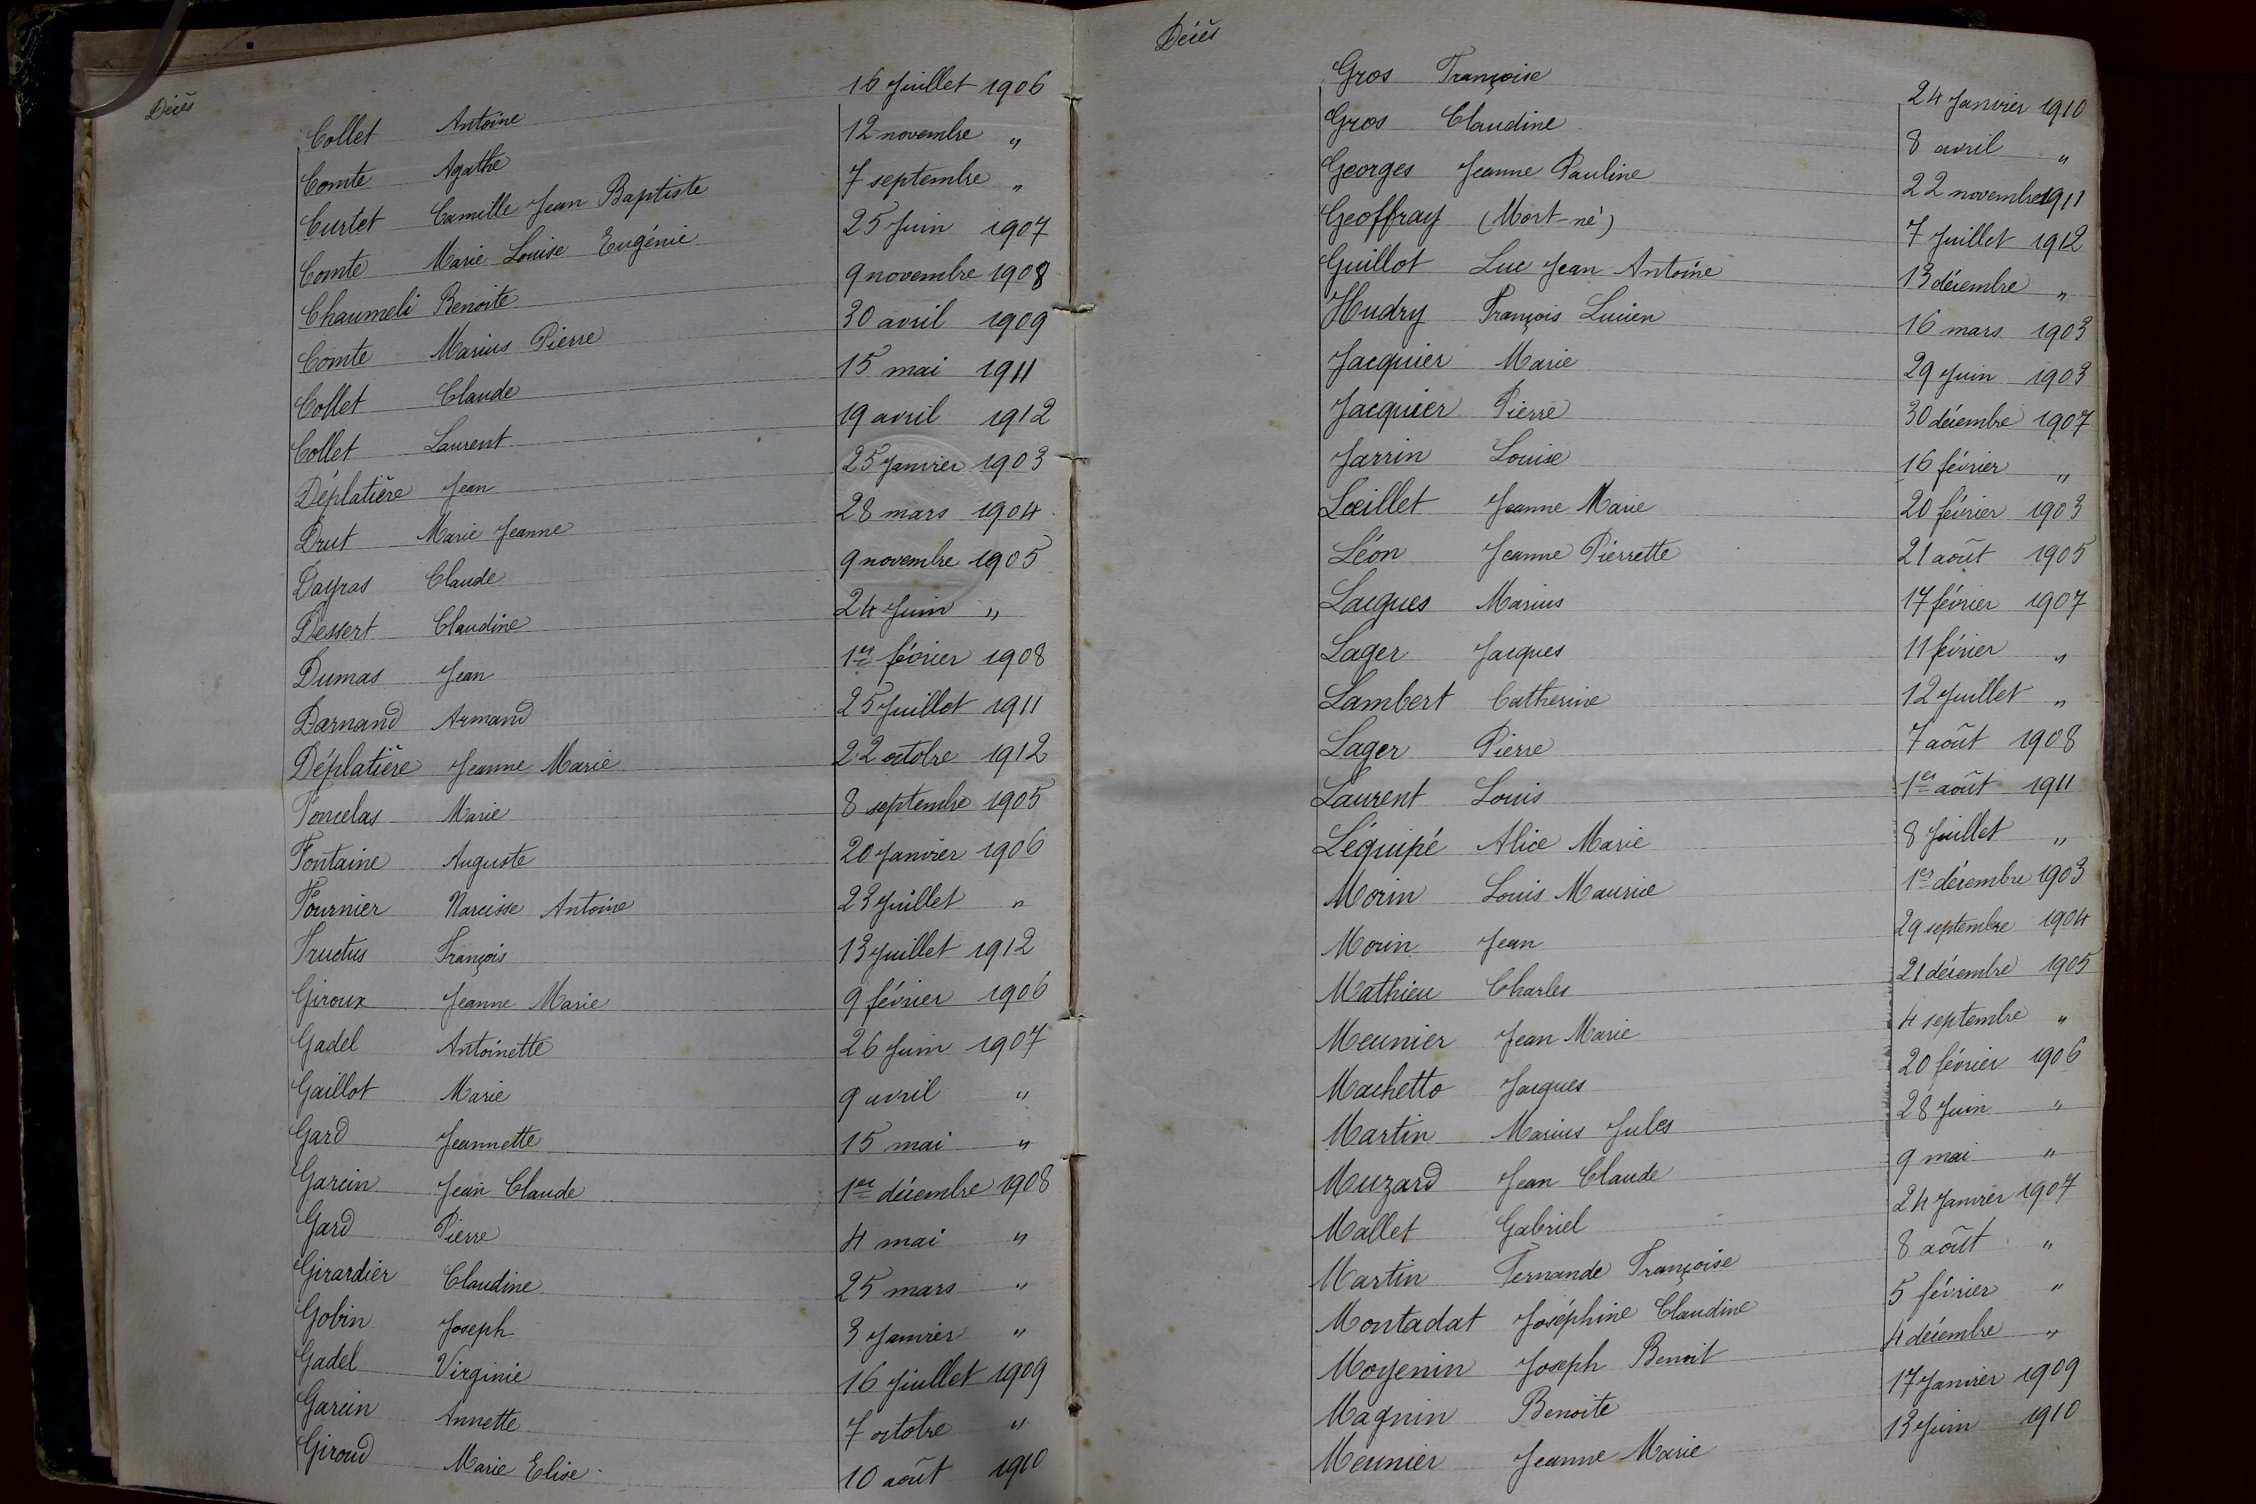 Décès
Collet Antoine 16 Juillet 1906
Comte Agathe 12 novembre "
Curtet Camille Jean Baptiste 7 septembre "
Comte Marie Louise Eugénie 25 Juin 1907
Chaumeli Benoite 9 novembre 1908
Comte Marius Pierre 30 avril 1909
Collet Claude 15 mai 1911
Collet Laurent 19 avril 1912
Déplatière Jean 25 Janvier 1903
Drut Marie Jeanne 28 mars 1904
Dayras Claude 9 novembre 1905
Dessert Claudine 24 Juin "
Dumas Jean 1er février 1908
Darnand Armand 25 Juillet 1911
Déplatière Jeanne Marie 22 octobre 1912
Foncelas Marie 8 septembre 1905
Fontaine Auguste 20 Janvier 1906
Fournier Narcisse Antoine 23 Juillet "
Fructus François 13 Juillet 1912
Giroux Jeanne Marie 9 février 1906
Gadel Antoinette 26 Juin 1907
Gaillot Marie 9 avril "
Gard Jeannette 15 mai "
Garcin Jean Claude 1er décembre 1908
Gard Pierre 4 mai "
Girardier Claudine 25 mars "
Gobin Joseph 3 Janvier "
Gadel Virginie 16 Juillet 1909
Garcin Annette 7 octobre "
Giroud Marie Elise 10 août 1910
Décès
Gros Françoise 24 Janvier 1910
Gros Claudine 8 avril "
Georges Jeanne Pauline 22 novembre 1911
Geoffray (Mort-né) 7 Juillet 1912
Guillot Luc Jean Antoine 13 décembre "
Hudry François Lucien 16 mars 1903
Jacquier Marie 29 Juin 1903
Jacquier Pierre 30 décembre 1907
Jarrin Louise 16 février "
Lœillet Jeanne Marie 20 février 1903
Léon Jeanne Pierrette 21 août 1905
Lacques Marius 17 février 1907
Lager Jacques 11 février "
Lambert Catherine 12 Juillet "
Lager Pierre 7 août 1908
Laurent Louis 1er août 1911
Léquipé Alice Marie 8 Juillet "
Morin Louis Maurice 1er décembre 1903
Morin Jean 29 septembre 1904
Mathieu Charles 21 décembre 1905
Meunier Jean Marie 4 septembre "
Machetto Jacques 20 février 1906
Martin Marius Jules 28 Juin "
Muzard Jean Claude 9 mai "
Mallet Gabriel 24 Janvier 1907
Martin Fernande Françoise 8 août "
Montadat Joséphine Claudine 5 février "
Moyenin Joseph Benoit 4 décembre "
Magnin Benoite 17 Janvier 1909
Meunier Jeanne Marie 13 Juin 1910